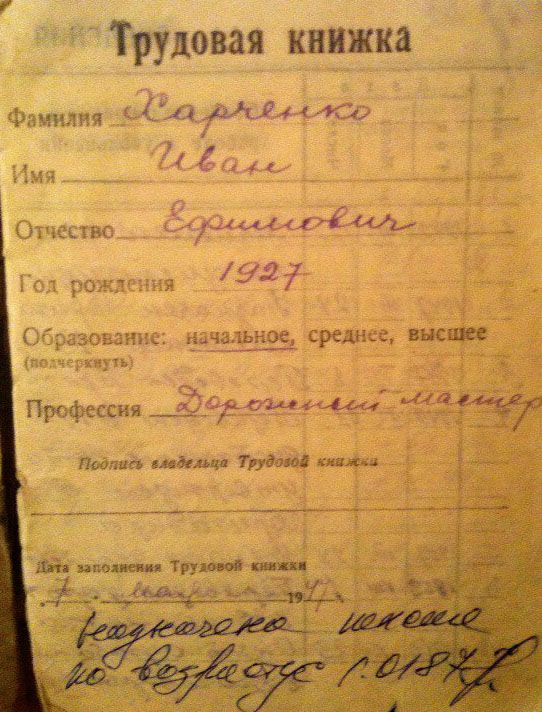 Трудовая книжка
Фамилия Харченко
Имя Иван
Отчество Ефимович
Год рождения 1927
Образование: начальное, среднее, высшее
(подчеркнуть)
Профессия Дорожный мастер
Подпись владельца Трудовой книжки
Дата заполнения Трудовой книжки
7 марта 1947.
назначена пенсия
по возрасту с. 0187